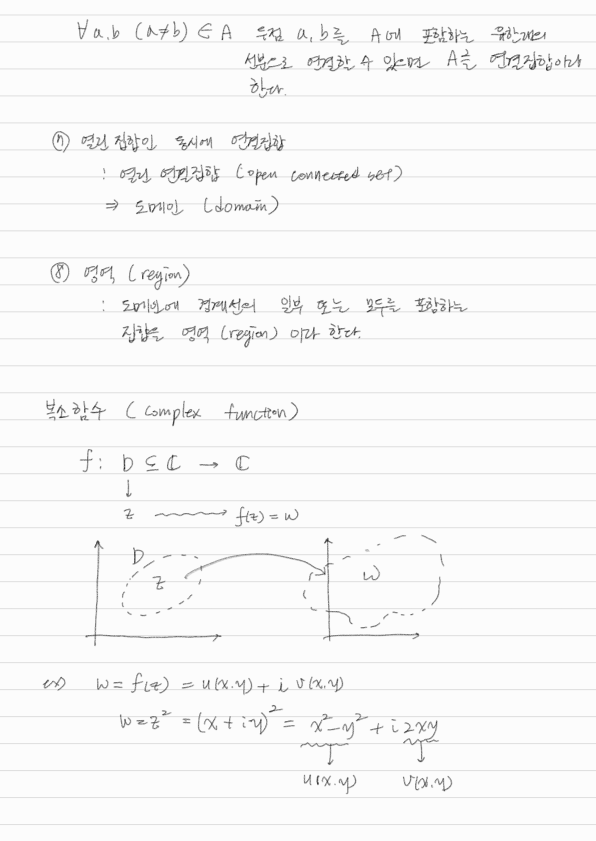 ∀a,b (a≠b) ∈ A 두점 a,b를 A에 포함하는 유한개의
선분으로 연결할 수 있으면 A를 연결집합이라
한다.
⑦ 열린 집합인 동시에 연결집합
: 열린 연결집합 (open connected set)
⇒ 도메인 (domain)
⑧ 영역 (region)
: 도메인에 경계선의 일부 또는 모두를 포함하는
집합을 영역 (region) 이라 한다.
복소함수 (complex function)
f: D ⊆ ℂ → ℂ
↓
z ⟿ f(z) = w
D
z w
ex) w = f(z) = u(x.y) + i v(x.y)
w = z² = (x + iy)² = x² - y² + i 2xy
↓ ↓
u(x.y) v(x.y)